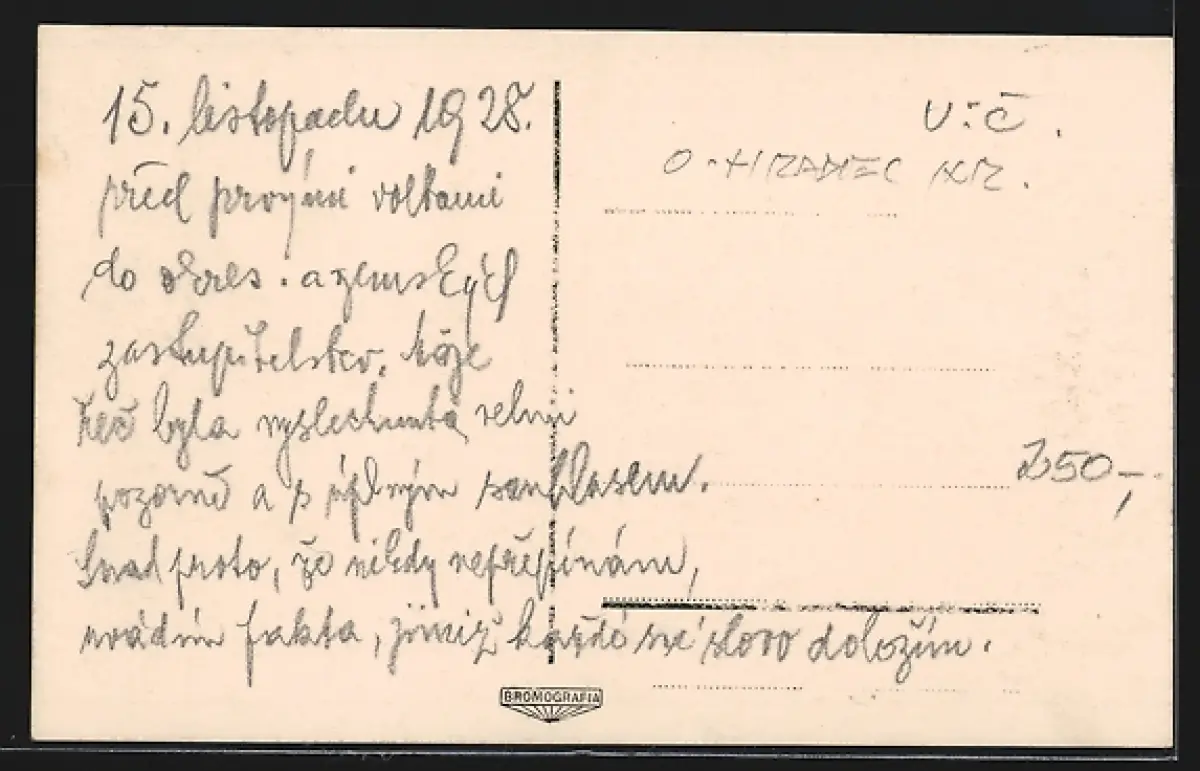 15. listopadu 1928.
před prvými volbami
do okres. a zemských
zastupitelstev.
řeč byla vyslechnuta velmi
pozorně a s úplným souhlasem.
Snad proto, že nikdy nepřepínám,
uvádím fakta, jimiž každé své slovo doložím.
V:Č.
O-HRADEC KR.
250,-
BROMOGRAFIA